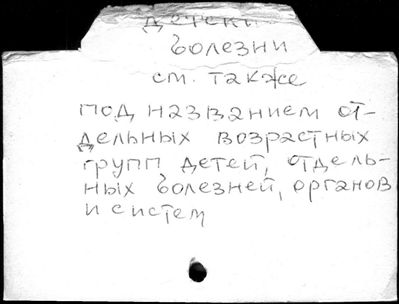 Детски
болезни
см. также
под названием от-
дельных возрастных
групп детей, отдель-
ных болезней, органов
и систем